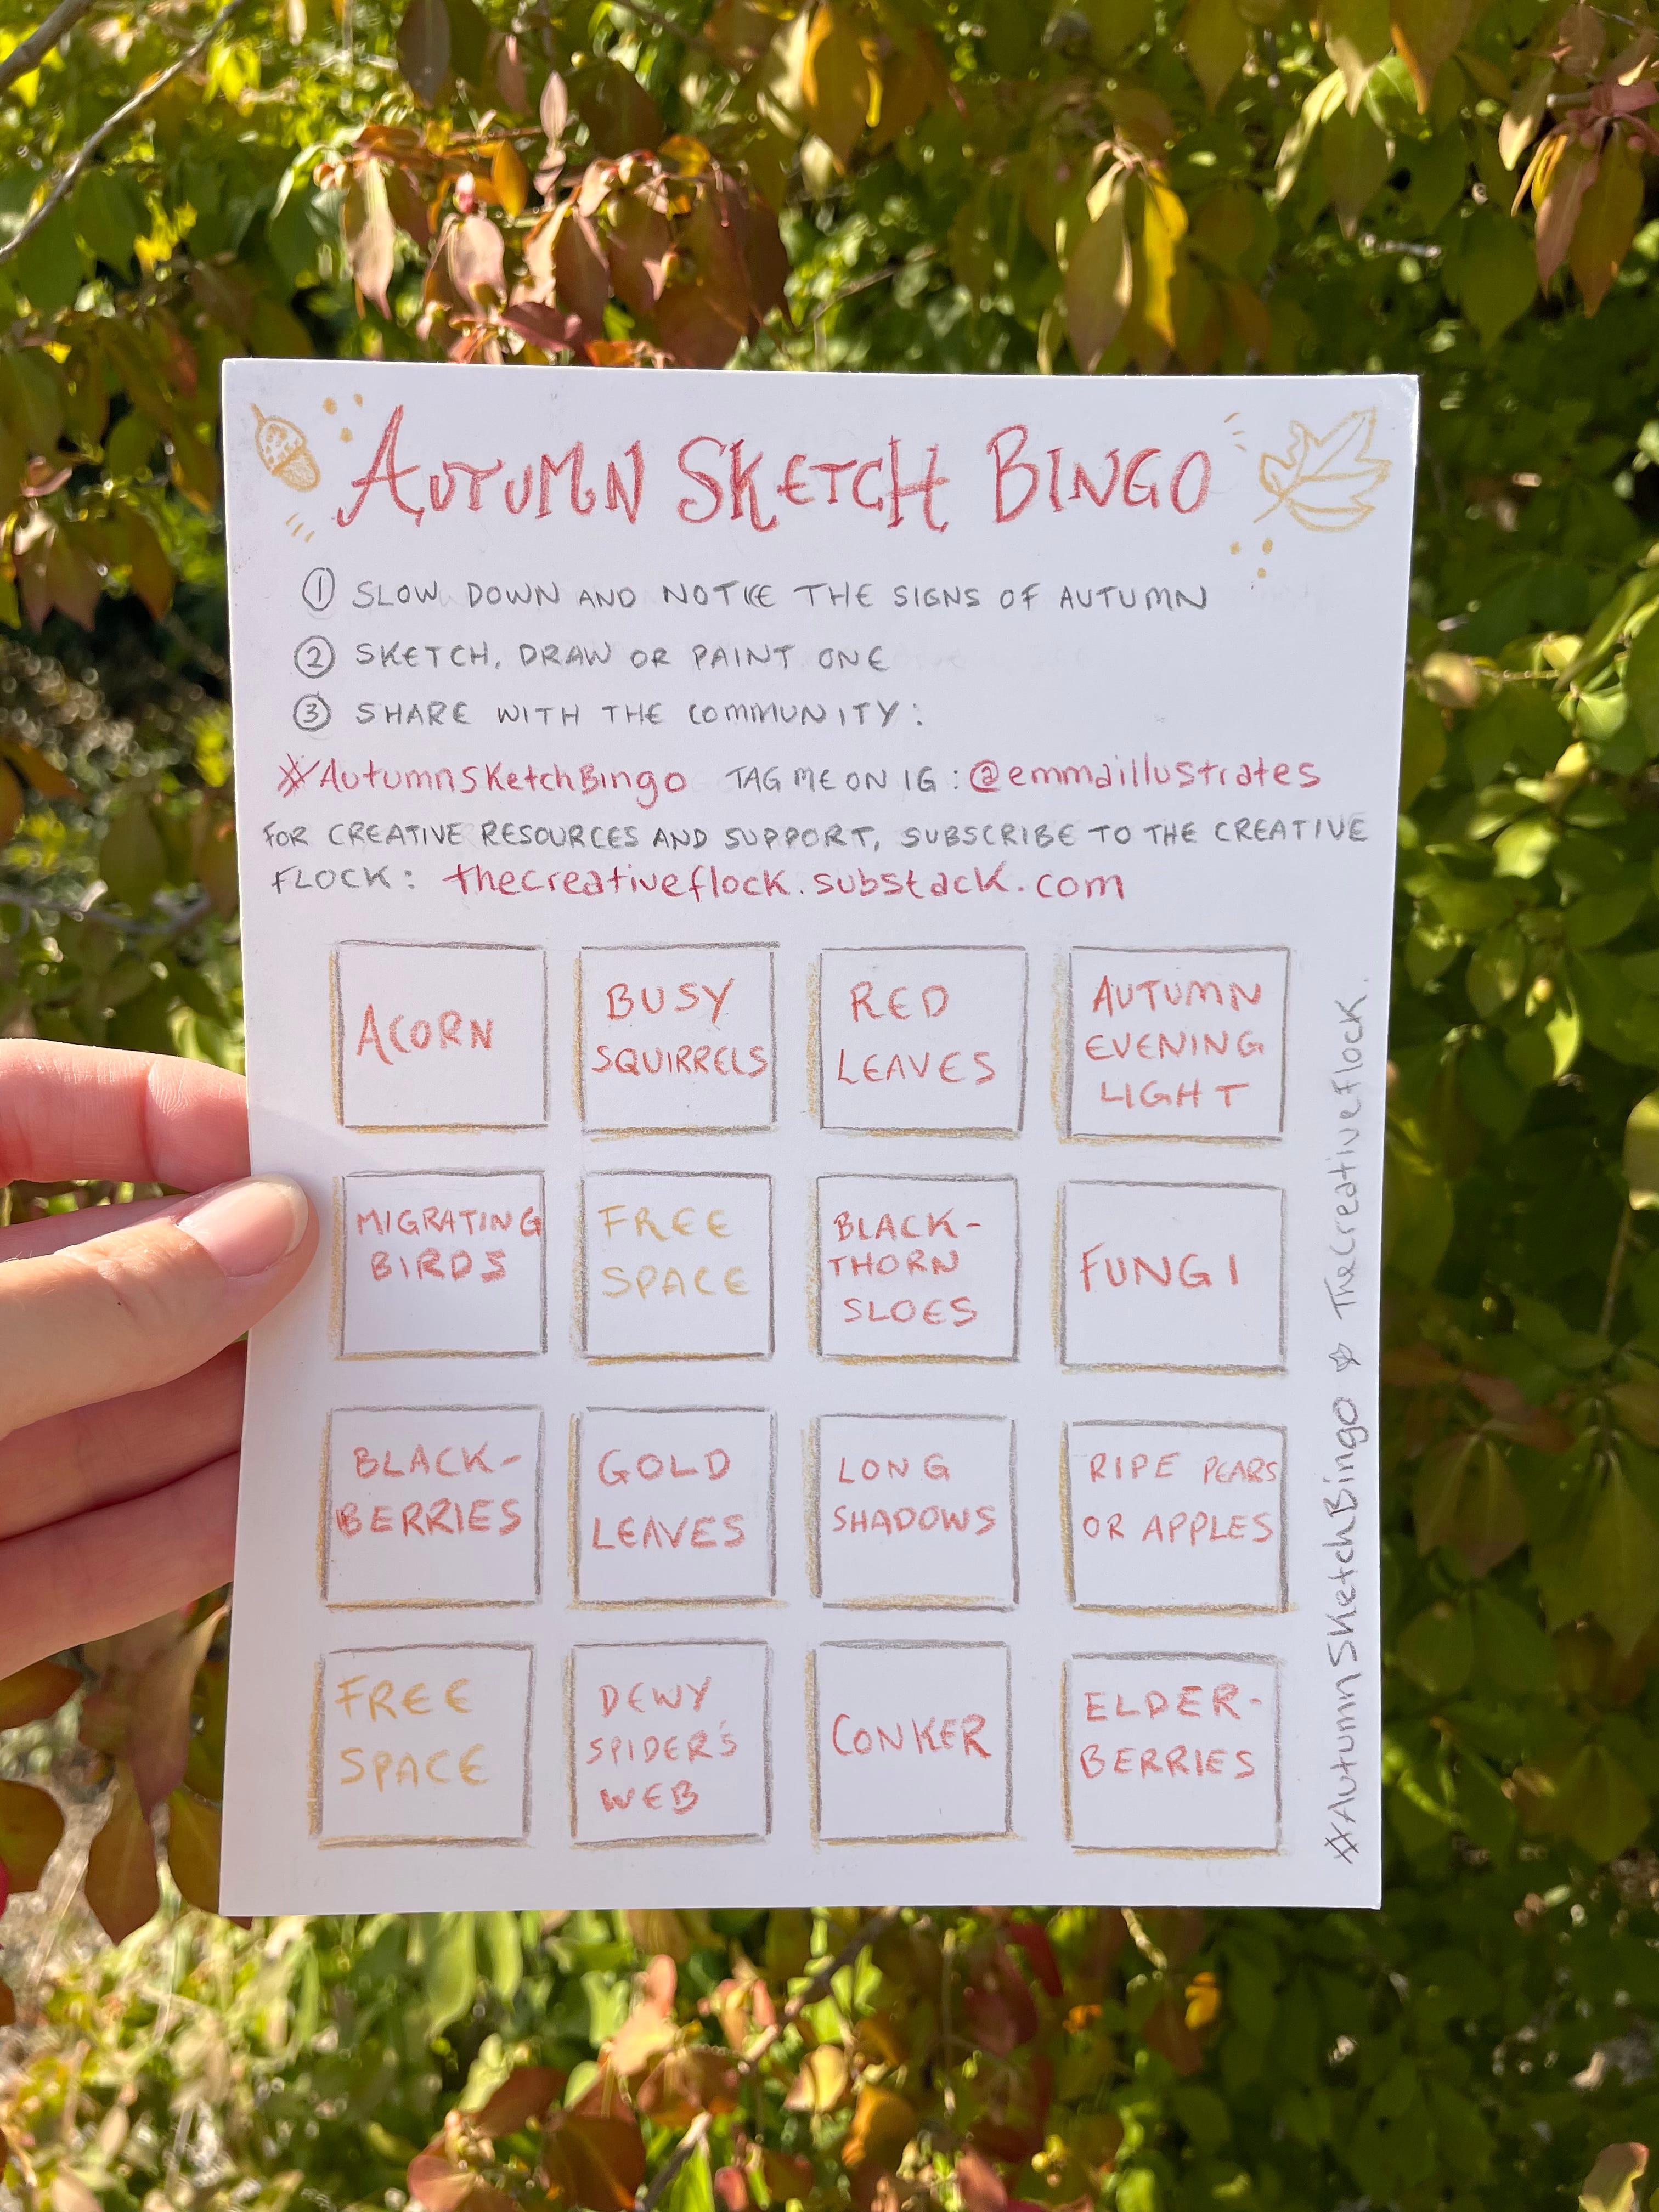 AUTUMN SKETCH BINGO
① SLOW DOWN AND NOTICE THE SIGNS OF AUTUMN
② SKETCH, DRAW OR PAINT ONE
③ SHARE WITH THE COMMUNITY:
#AutumnSketchBingo TAG ME ON IG: @emmaillustrates
FOR CREATIVE RESOURCES AND SUPPORT, SUBSCRIBE TO THE CREATIVE
FLOCK: thecreativeflock.substack.com
ACORN
BUSY
SQUIRRELS
RED
LEAVES
AUTUMN
EVENING
LIGHT
MIGRATING
BIRDS
FREE
SPACE
BLACK-
THORN
SLOES
FUNGI
BLACK-
BERRIES
GOLD
LEAVES
LONG
SHADOWS
RIPE PEARS
OR APPLES
FREE
SPACE
DEWY
SPIDER'S
WEB
CONKER
ELDER-
BERRIES
#AutumnSketchBingo TheCreativeFlock.